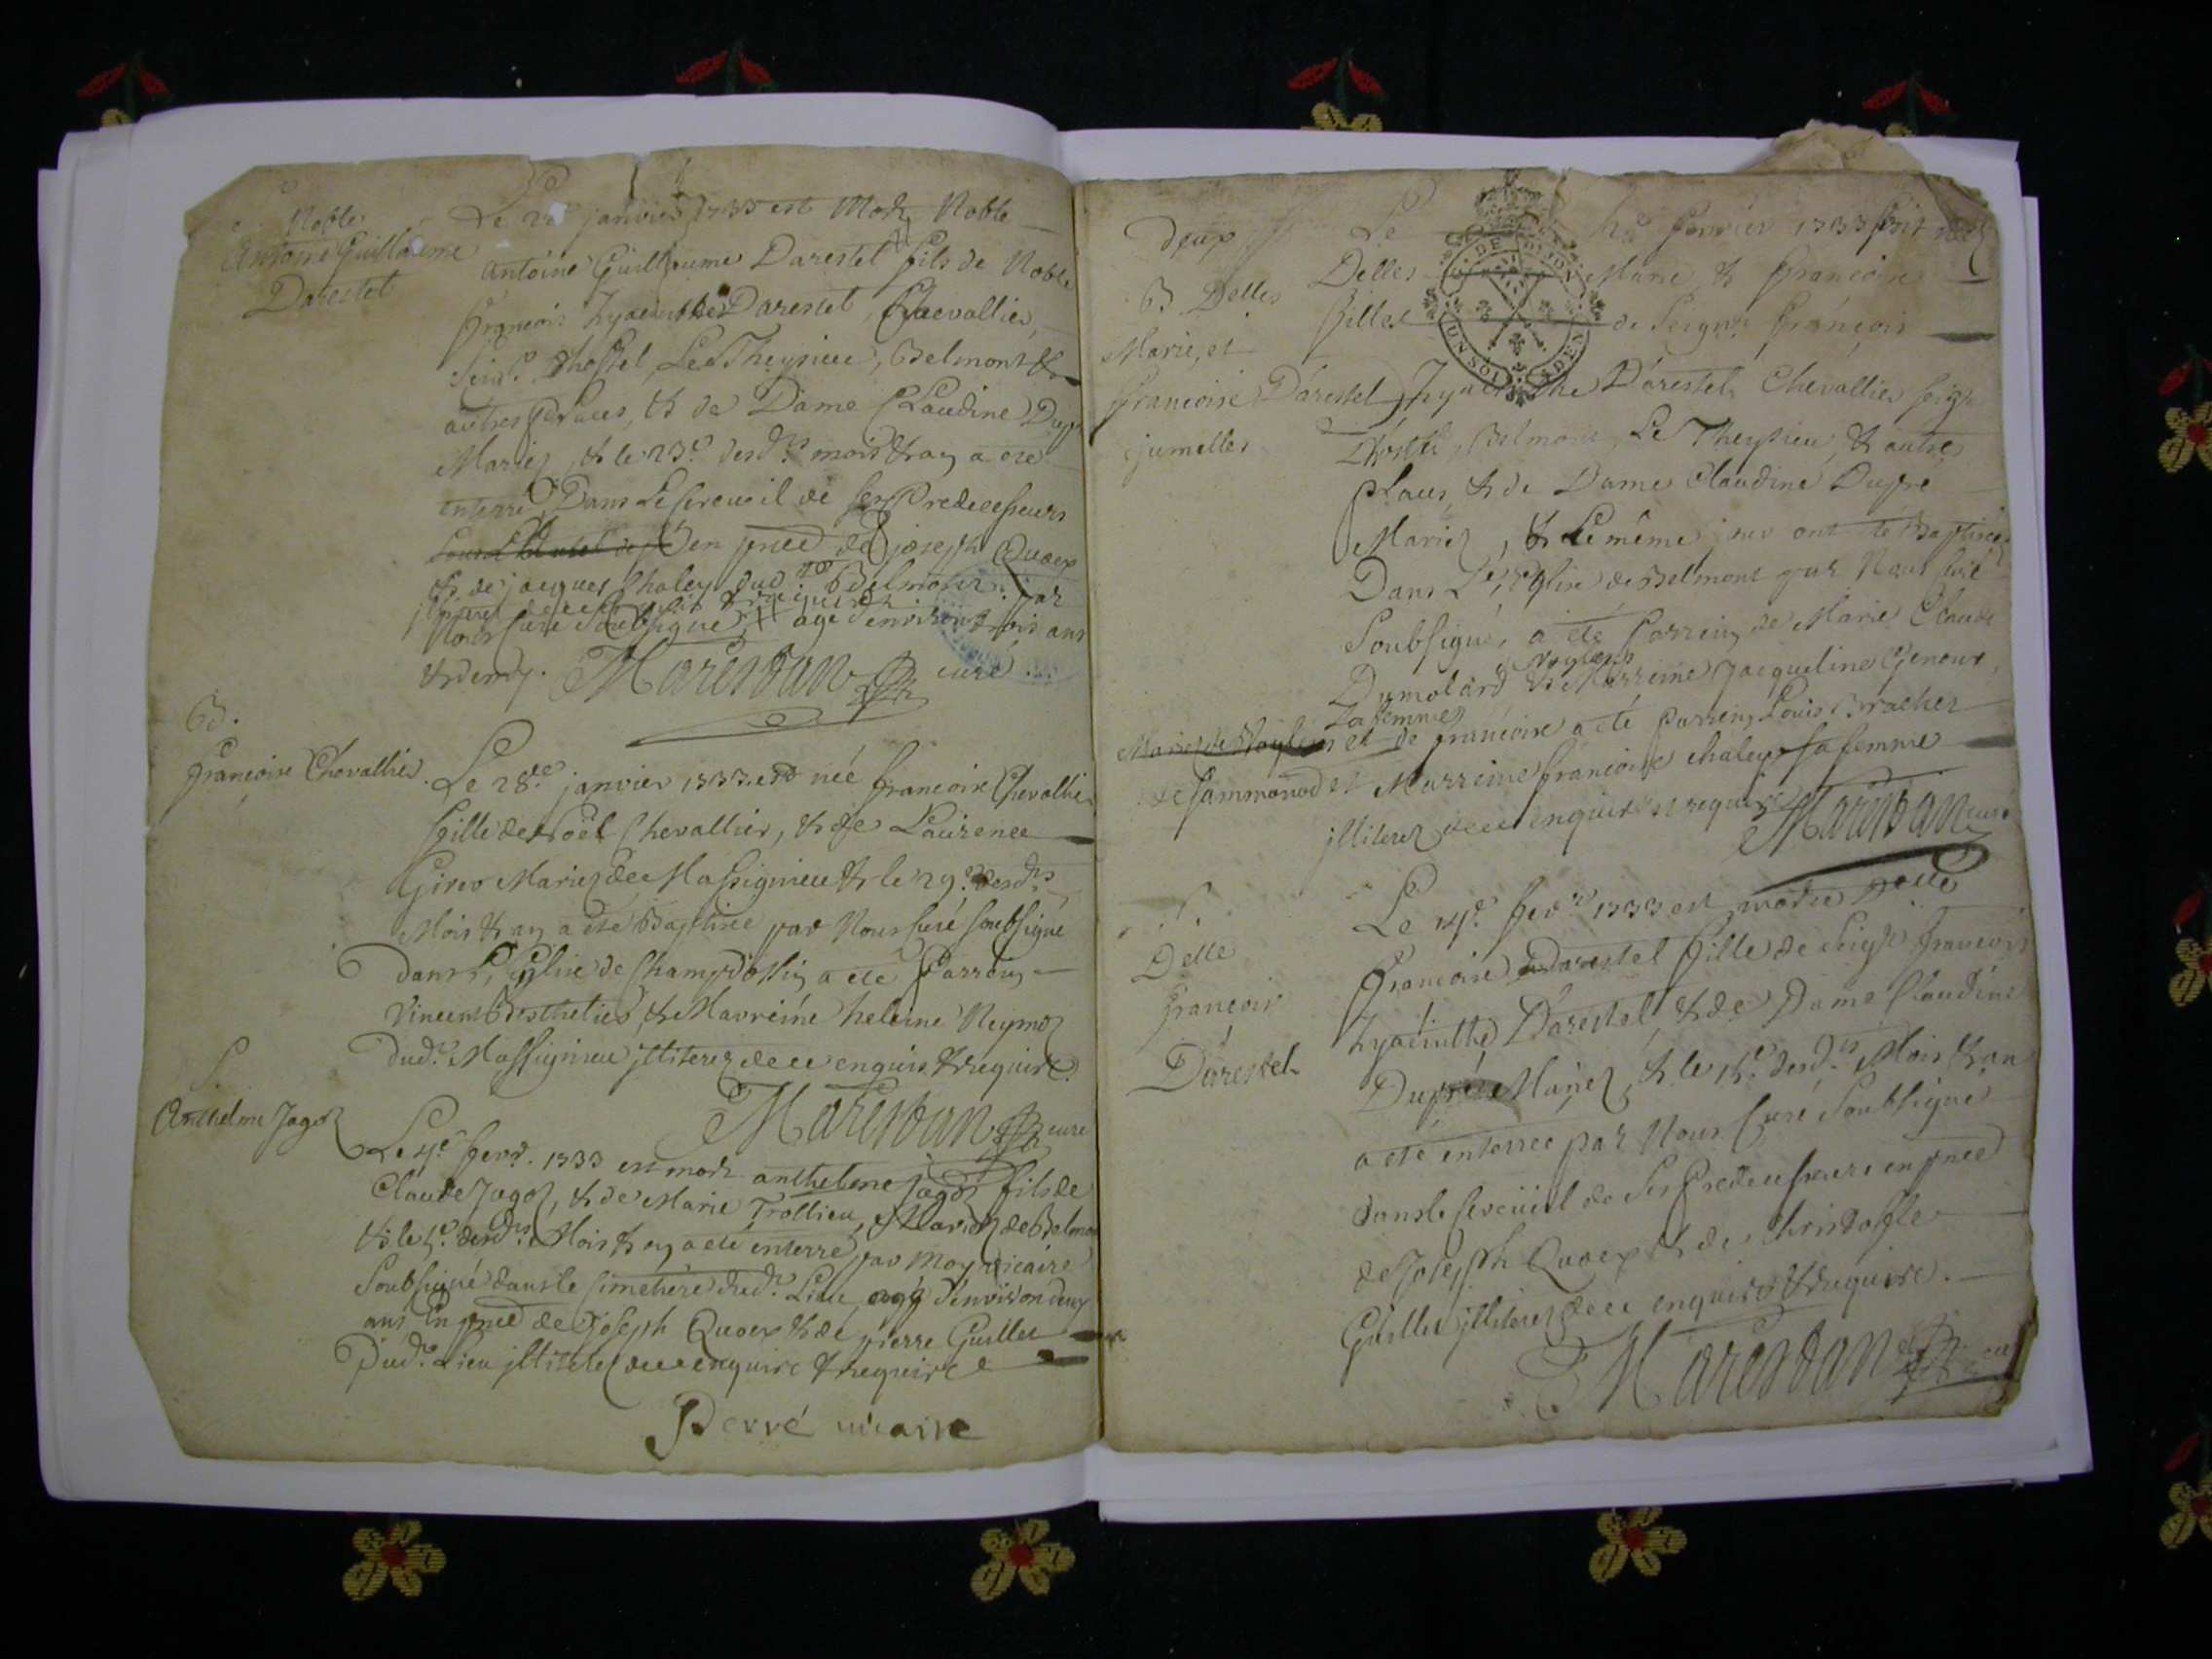 Noble
Antoine Guillaume
Darestel
Le janvier 1733 est Mort Noble
Antoine Guillaume Darestel fils de Noble
françois hyacinthe Darestel, Chevallier,
Seigr. Dhostel, Le Theysieu, Belmont &
autres places, & de Dame Claudine Dupré
Mariez, & le 23e. desdts mois & an a eté
enterré Dans Le Cercueil de ses Predecesseurs
en pnce de joseph Quoex
& de jacques Chaley dud. Belmont par
Nous Curé Soubsigné, agé d'environ trois ans
& demy. Marestan curé
B.
françoise Chevallier.
Le 28e janvier 1733 est née françoise Chevallier
fille de Noël Chevallier, & de Laurence
Mariez de Massignieu & le 29e desdts
Mois & an a eté Baptisée par Nous Curé soubsigné
dans L'Eglise de Champdossin a eté Parrein
Vincent Berthelier, & Marreine heleine Reymoz
dud. Massignieu jlliterez de ce enquis & requis.
Marestan curé
S.
Anthelme Jagoz
Le 4e fevr. 1733 est mort anthelme Jagoz fils de
Claude Jagoz, & de Marie Trollieu, Mariez de Belmont
& le 5e. desdts Mois & an a eté enterré par Moy vicaire
Soubsigné dans le Cimetiere dud. Lieu, agé d'environ deux
ans En pnce de Joseph Quoex & de pierre Guillet
Dud. Lieu jlliterez de ce enquis & requis
Perré vicaire
deux
B. Delles
Marie, et
françoise Darestel
jumelles
Le fevrier 1733 sont nées
Delles Marie & françoise
filles de Seignr. françois
hyacinthe Darestel, Chevallier seigr
Dhostel, Belmont, Le Theysieu, & autres
places, & de Dame Claudine Dupré
Mariez, & Le même jour ont eté Baptisées
Dans L'Eglise de Belmont par Nous Curé
Soubsigné, a eté Parrein de Marie Claude
Dumolard & Marreine Jacqueline Genoux
sa femme
et de françoise a eté Parrein Louis Bracher
de Sammonod et Marreine françoise chaley sa femme
jlliterez de ce enquis & requis Marestan curé
S.
Delle
françoise
Darestel
Le 14e. fevr 1733 est morte Delle
françoise Darestel fille de Seigr. françois
hyacinthe Darestel, & de Dame Claudine
Dupré Mariez, & le 15e. desdts Mois & an
a eté enterrée par Nous Curé Soubsigné
dans le Cercüeil de Ses Predecesseurs en pnce
de Joseph Quoex & de Christofle
Guillet jlliterez de ce enquis & requis.
Marestan curé